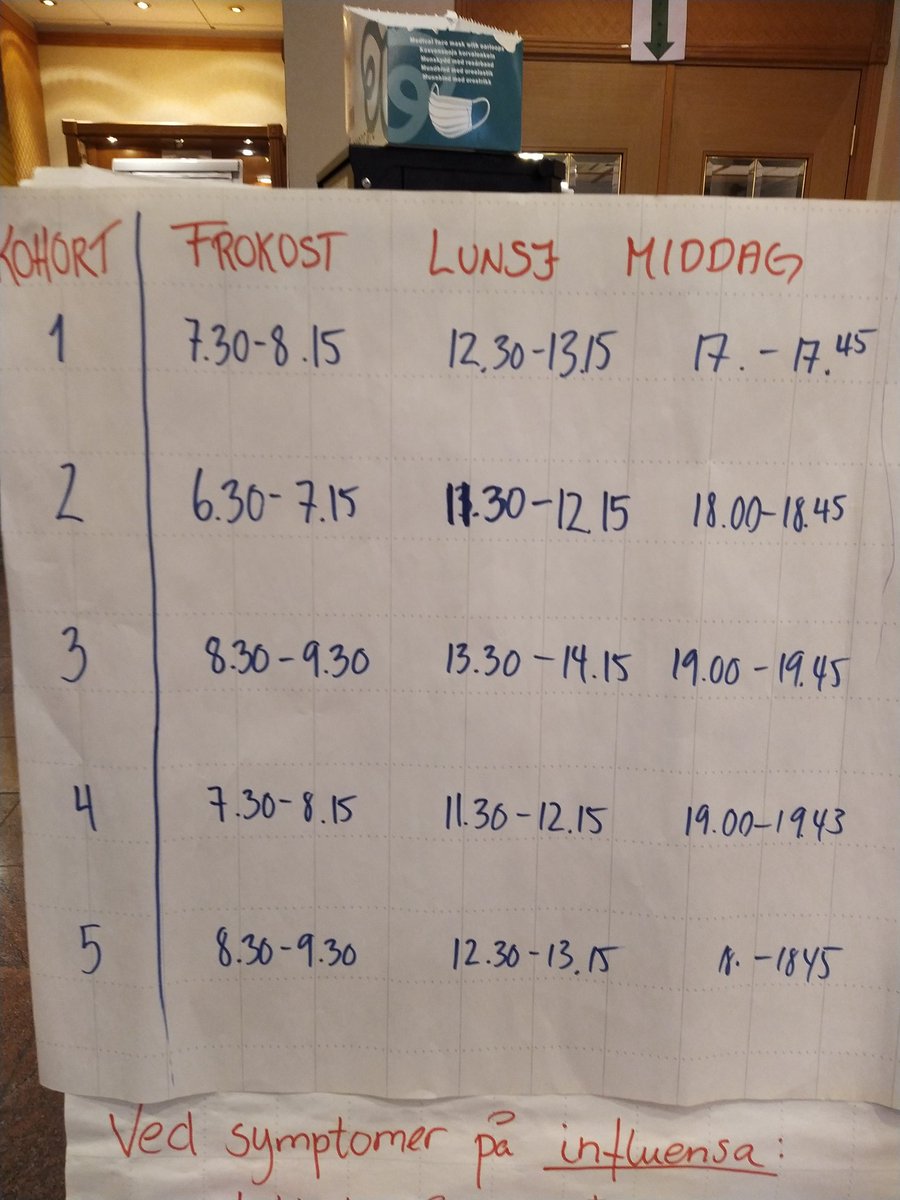 Medical face mask with earloops
Kirurgisk
Munskydd med resårband
Mundbind med øreelastik
Munnbind med ørestrikk
KOHORT FROKOST LUNSJ MIDDAG
1 7.30-8.15 12.30-13.15 17. - 17.45
2 6.30-7.15 11.30-12.15 18.00-18.45
3 8.30-9.30 13.30-14.15 19.00-19.45
4 7.30-8.15 11.30-12.15 19.00-1943
5 8.30-9.30 12.30-13.15 18. -1845
Ved symptomer på influensa: